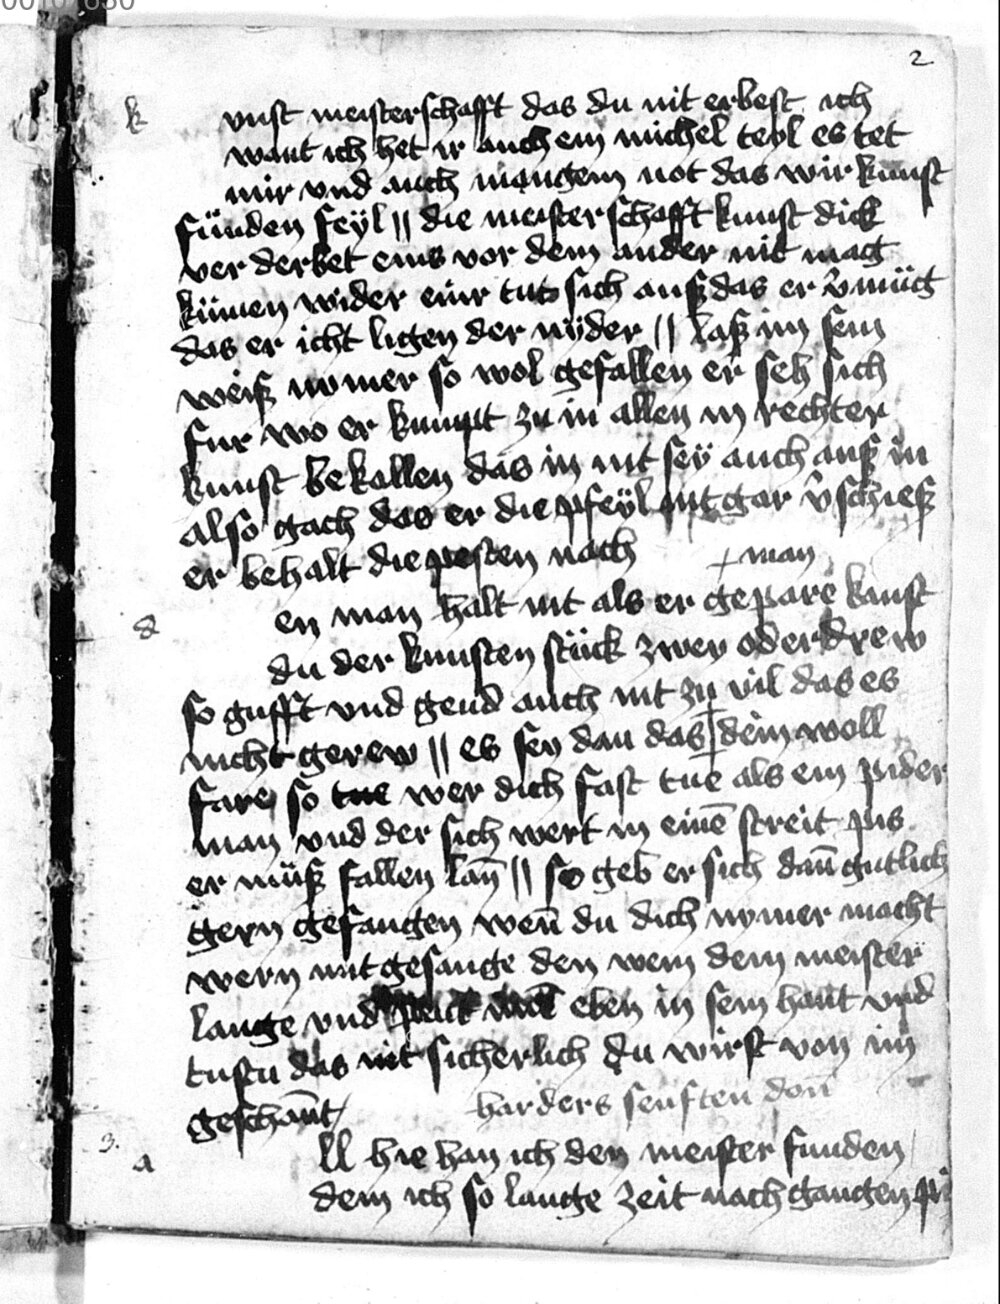 2
k
unst meisterschafft das du nit erbest ich
want ich het ir auch ein michel teyl es tet
mir vnd auch mangem not das wir kunst
fünden feyl || die meisterschafft kunst dick
verderbet eins vor dem ander nit mag
kümen wider einr tut sich auß das er v̄müg
das er icht ligen der nyder || laß im sein
weiß nymer so wol gefallen er seh sich
fur wo er kumpt zu in allen in rechter
kunst bekallen das im nit sey auch auß in
also gach das er die pfeyl nit gar v̄schieß
er behalt die pesten nach
man
d
en man halt nit als er gepare kanst
du der kunsten stück zwey oder drew
so gufft vnd geud auch nit zu vil das es
nicht gerew || es sey dan das dein woll
fare so wer dich fast tuē als ein pider
man vnd der sich wert in einē streit pis
er müß fallen lan̄ || so geb er sich dan̄ gutlich
gern gefangen wen̄ du dich nymer macht
wern mit gesange den wein dem meister
lange vnd eben in sein hant vnd
tustu das nit sicherlich du wirst von im
geschant
harders senften don
3.
a
ll hie han ich den meister funden
dem ich so lange zeit nach gangen